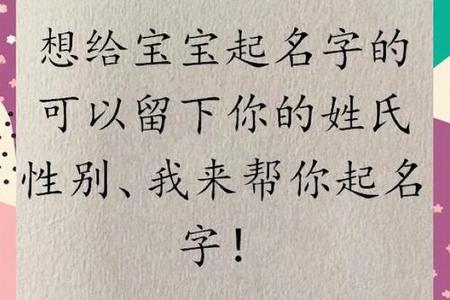 想给宝宝起名字的
可以留下你的姓氏
性别、我来帮你起名
字！